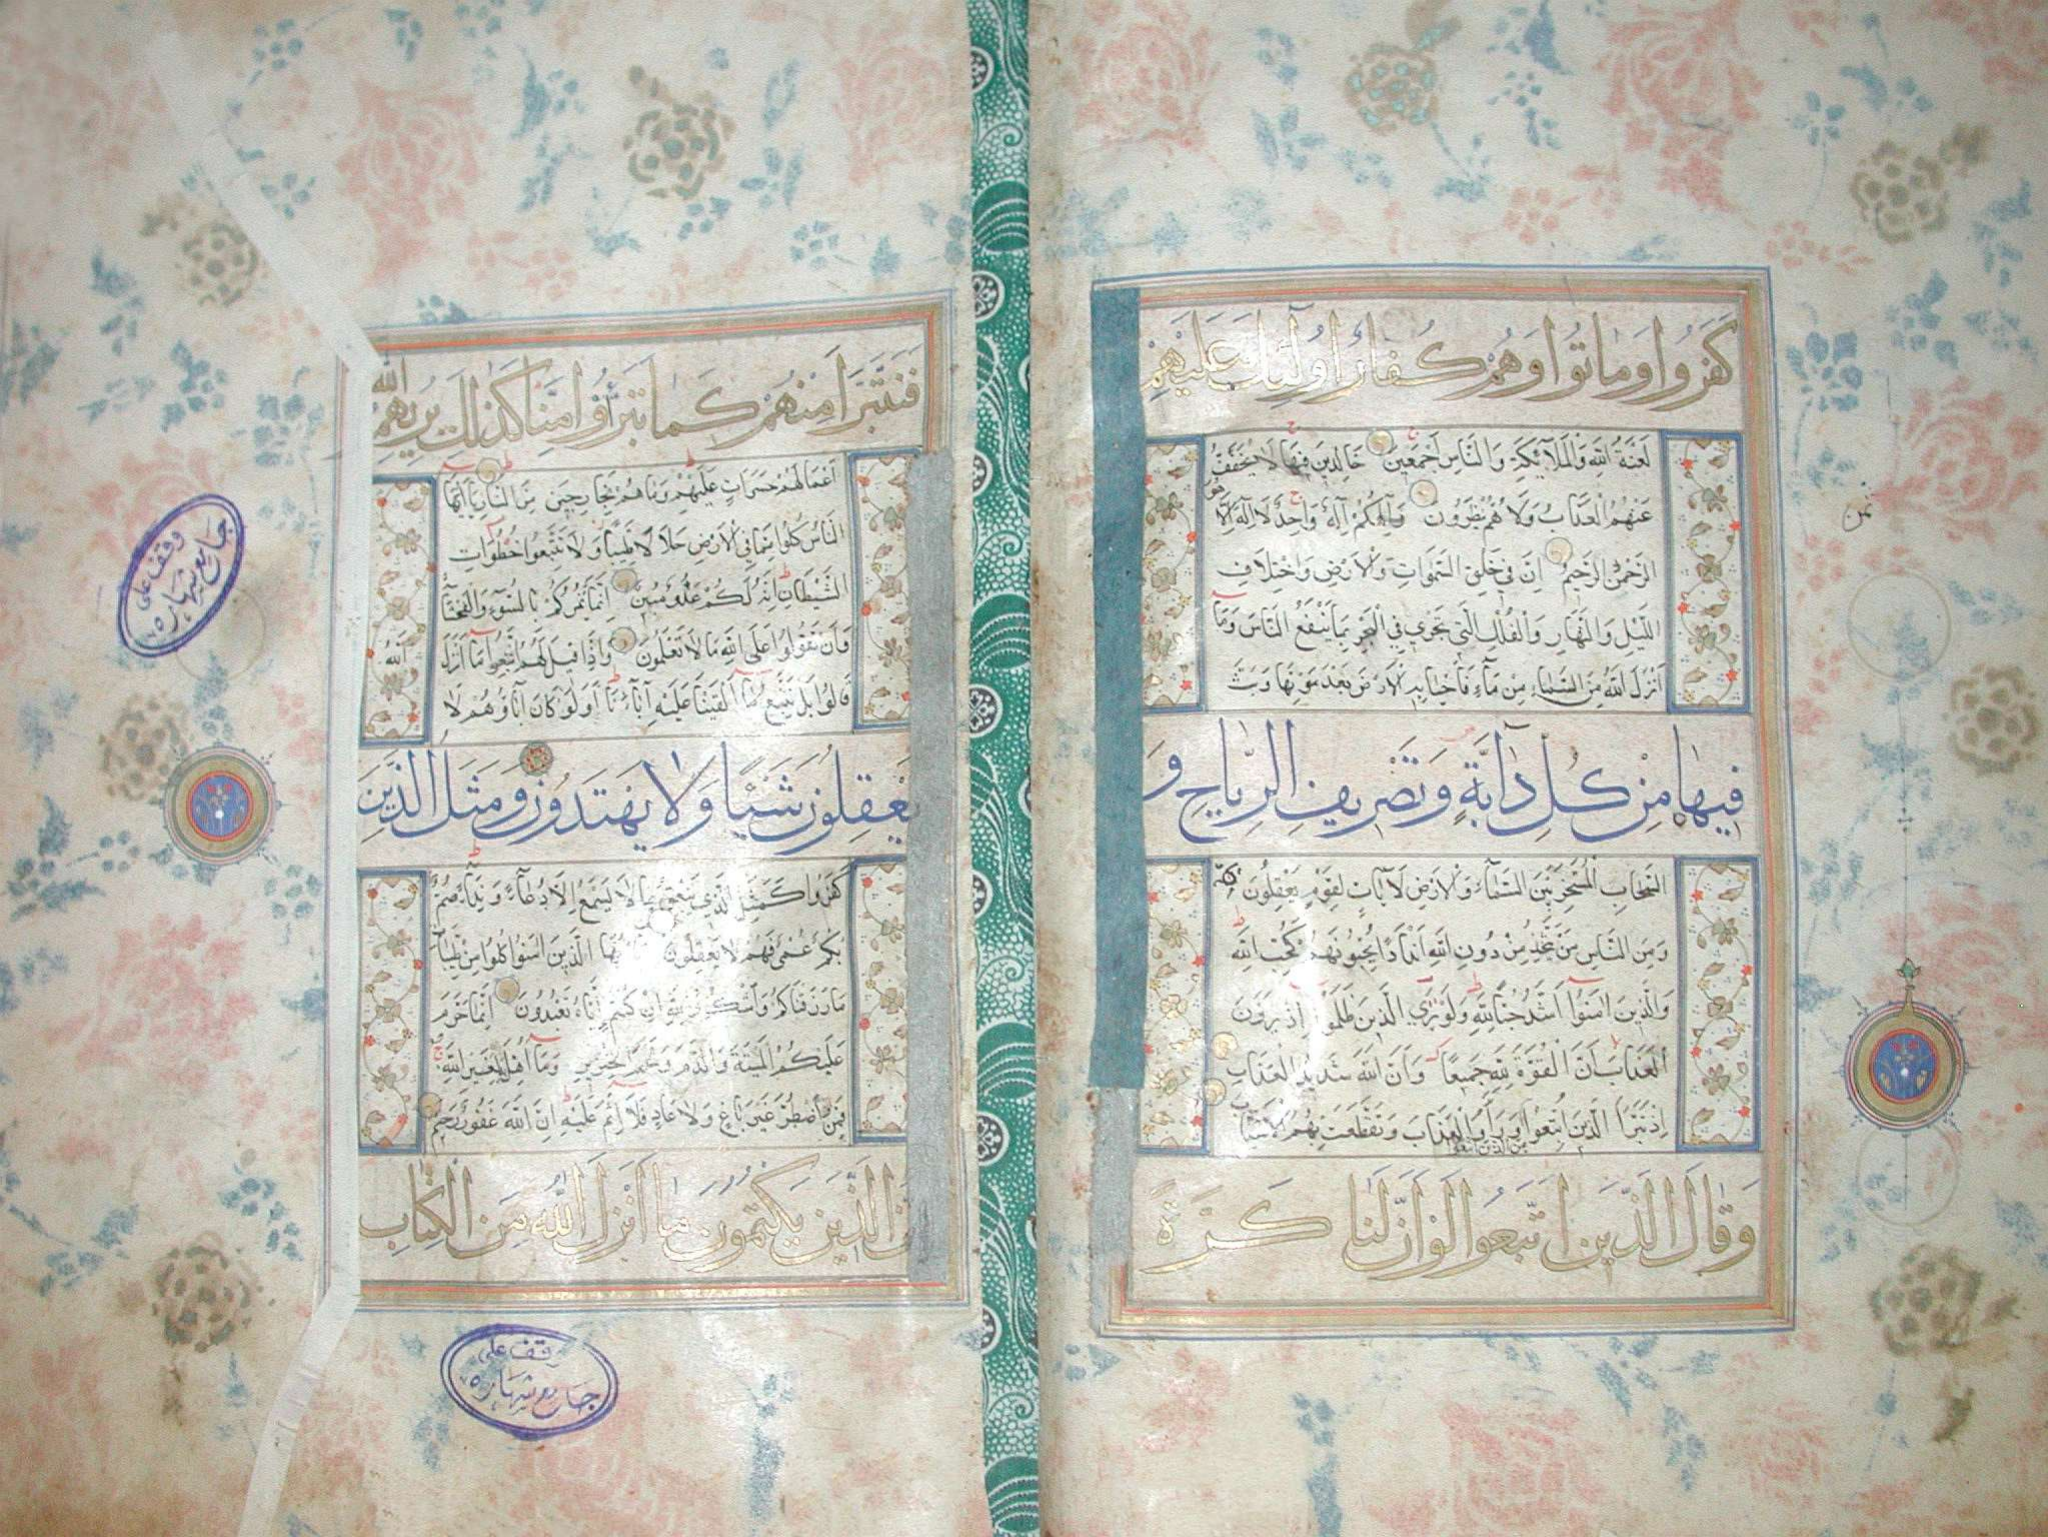 كَفَرُوا وَمَاتُوا وَهُمْ كُفَّارٌ اُولٰٓئِكَ عَلَيْهِمْ
لَعْنَةُ اللّٰهِ وَالْمَلَآئِكَةِ وَالنَّاسِ اَجْمَعِينَ خَالِدِينَ فِيهَا لَا يُخَفَّفُ
عَنْهُمُ الْعَذَابُ وَلَا هُمْ يُنْظَرُونَ وَاِلٰهُكُمْ اِلٰهٌ وَاحِدٌ لَا اِلٰهَ اِلَّا هُوَ
الرَّحْمٰنُ الرَّحِيمُ اِنَّ فِي خَلْقِ السَّمٰوَاتِ وَالْاَرْضِ وَاخْتِلَافِ
اللَّيْلِ وَالنَّهَارِ وَالْفُلْكِ الَّتِي تَجْرِي فِي الْبَحْرِ بِمَا يَنْفَعُ النَّاسَ وَمَآ
اَنْزَلَ اللّٰهُ مِنَ السَّمَآءِ مِنْ مَآءٍ فَاَحْيَا بِهِ الْاَرْضَ بَعْدَ مَوْتِهَا وَبَثَّ
فِيهَا مِنْ كُلِّ دَآبَّةٍ وَتَصْرِيفِ الرِّيَاحِ وَ
السَّحَابِ الْمُسَخَّرِ بَيْنَ السَّمَآءِ وَالْاَرْضِ لَاٰيَاتٍ لِقَوْمٍ يَعْقِلُونَ
وَمِنَ النَّاسِ مَنْ يَتَّخِذُ مِنْ دُونِ اللّٰهِ اَنْدَادًا يُحِبُّونَهُمْ كَحُبِّ اللّٰهِ
وَالَّذِينَ اٰمَنُوٓا اَشَدُّ حُبًّا لِلّٰهِ وَلَوْ يَرَى الَّذِينَ ظَلَمُوٓا اِذْ يَرَوْنَ
الْعَذَابَ اَنَّ الْقُوَّةَ لِلّٰهِ جَمِيعًا وَاَنَّ اللّٰهَ شَدِيدُ الْعَذَابِ
اِذْ تَبَرَّاَ الَّذِينَ اتُّبِعُوا وَرَاَوُا الْعَذَابَ وَتَقَطَّعَتْ بِهِمُ الْاَسْبَابُ
مِنَ الَّذِينَ اتَّبَعُوا
وَقَالَ الَّذِينَ اتَّبَعُوا لَوْ اَنَّ لَنَا كَرَّةً
ثمن
فَنَتَبَرَّاَ مِنْهُمْ كَمَا تَبَرَّؤُا مِنَّا كَذٰلِكَ يُرِيهِمُ اللّٰهُ
اَعْمَالَهُمْ حَسَرَاتٍ عَلَيْهِمْ وَمَا هُمْ بِخَارِجِينَ مِنَ النَّارِ يَآ اَيُّهَا
النَّاسُ كُلُوا مِمَّا فِي الْاَرْضِ حَلَالًا طَيِّبًا وَلَا تَتَّبِعُوا خُطُوَاتِ
الشَّيْطَانِ اِنَّهُ لَكُمْ عَدُوٌّ مُبِينٌ اِنَّمَا يَأْمُرُكُمْ بِالسُّوٓءِ وَالْفَحْشَآءِ
وَاَنْ تَقُولُوا عَلَى اللّٰهِ مَا لَا تَعْلَمُونَ وَاِذَا قِيلَ لَهُمُ اتَّبِعُوا مَآ اَنْزَلَ اللّٰهُ
قَالُوا بَلْ نَتَّبِعُ مَآ اَلْفَيْنَا عَلَيْهِ اٰبَآءَنَا اَوَلَوْ كَانَ اٰبَآؤُهُمْ لَا
يَعْقِلُونَ شَيْئًا وَلَا يَهْتَدُونَ وَمَثَلُ الَّذِينَ
كَفَرُوا كَمَثَلِ الَّذِي يَنْعِقُ بِمَا لَا يَسْمَعُ اِلَّا دُعَآءً وَنِدَآءً صُمٌّ
بُكْمٌ عُمْيٌ فَهُمْ لَا يَعْقِلُونَ يَآ اَيُّهَا الَّذِينَ اٰمَنُوا كُلُوا مِنْ طَيِّبَاتِ
مَا رَزَقْنَاكُمْ وَاشْكُرُوا لِلّٰهِ اِنْ كُنْتُمْ اِيَّاهُ تَعْبُدُونَ اِنَّمَا حَرَّمَ
عَلَيْكُمُ الْمَيْتَةَ وَالدَّمَ وَلَحْمَ الْخِنْزِيرِ وَمَآ اُهِلَّ بِهِ لِغَيْرِ اللّٰهِ
فَمَنِ اضْطُرَّ غَيْرَ بَاغٍ وَلَا عَادٍ فَلَآ اِثْمَ عَلَيْهِ اِنَّ اللّٰهَ غَفُورٌ رَحِيمٌ
الَّذِينَ يَكْتُمُونَ مَآ اَنْزَلَ اللّٰهُ مِنَ الْكِتَابِ
وقف على
جامع شهاره
وقف على
جامع شهاره